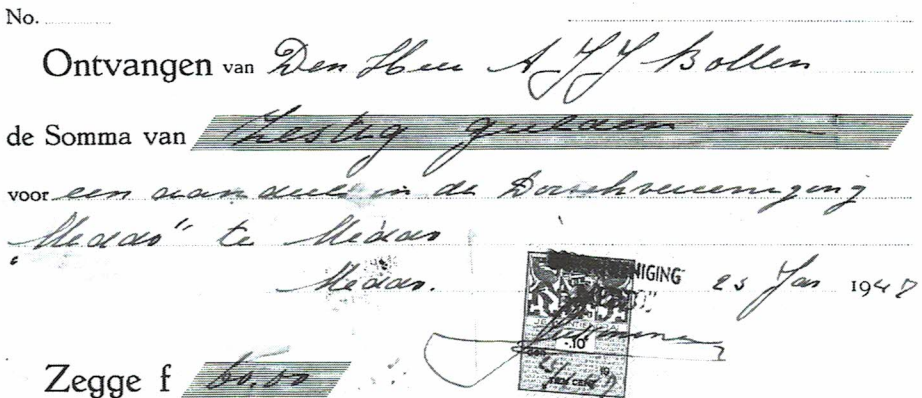 No.
Ontvangen van Den Heer A J J Bollen
de Somma van Zestig gulden
voor een aandeel in de Dorschvereeniging
"Meddo" te Meddo
Meddo. 25 Jan 194
NIGING
-.10
TIEN CENT
Zegge f 60.00